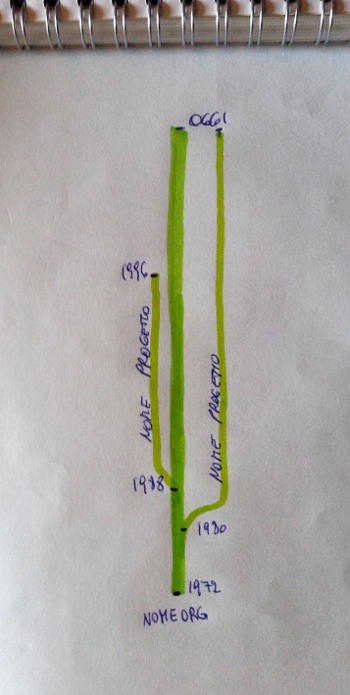 OGGI
1996
NOME PROGETTO
NOME PROGETTO
1988
1980
1972
NOME ORG